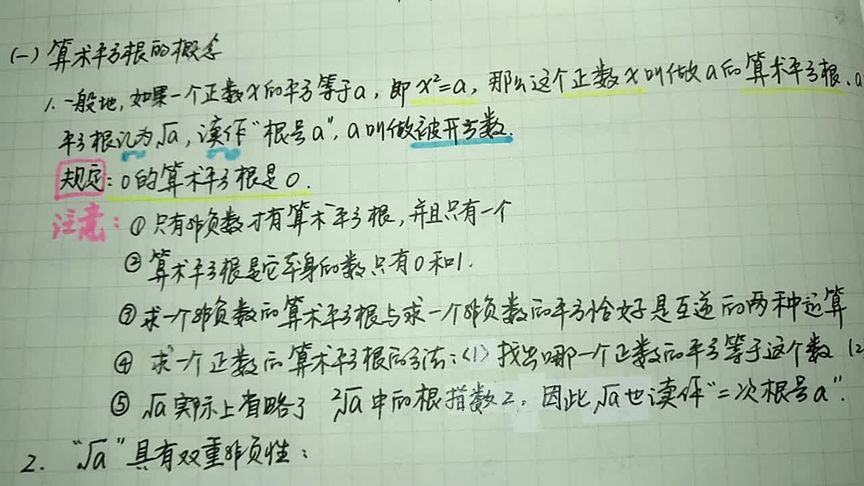 (一) 算术平方根的概念
1. 一般地,如果一个正数x的平方等于a,即x²=a,那么这个正数x叫做a的算术平方根.a
平方根记为√a,读作"根号a",a叫做被开方数.
规定:0的算术平方根是0.
注意:①只有非负数才有算术平方根,并且只有一个
②算术平方根是它本身的数只有0和1.
③求一个非负数的算术平方根与求一个非负数的平方恰好是互逆的两种运算
④ 求一个正数的算术平方根的方法:(1)找出哪一个正数的平方等于这个数 (2
⑤ √a实际上省略了 ²√a中的根指数2,因此√a也读作"二次根号a".
2. "√a"具有双重非负性: